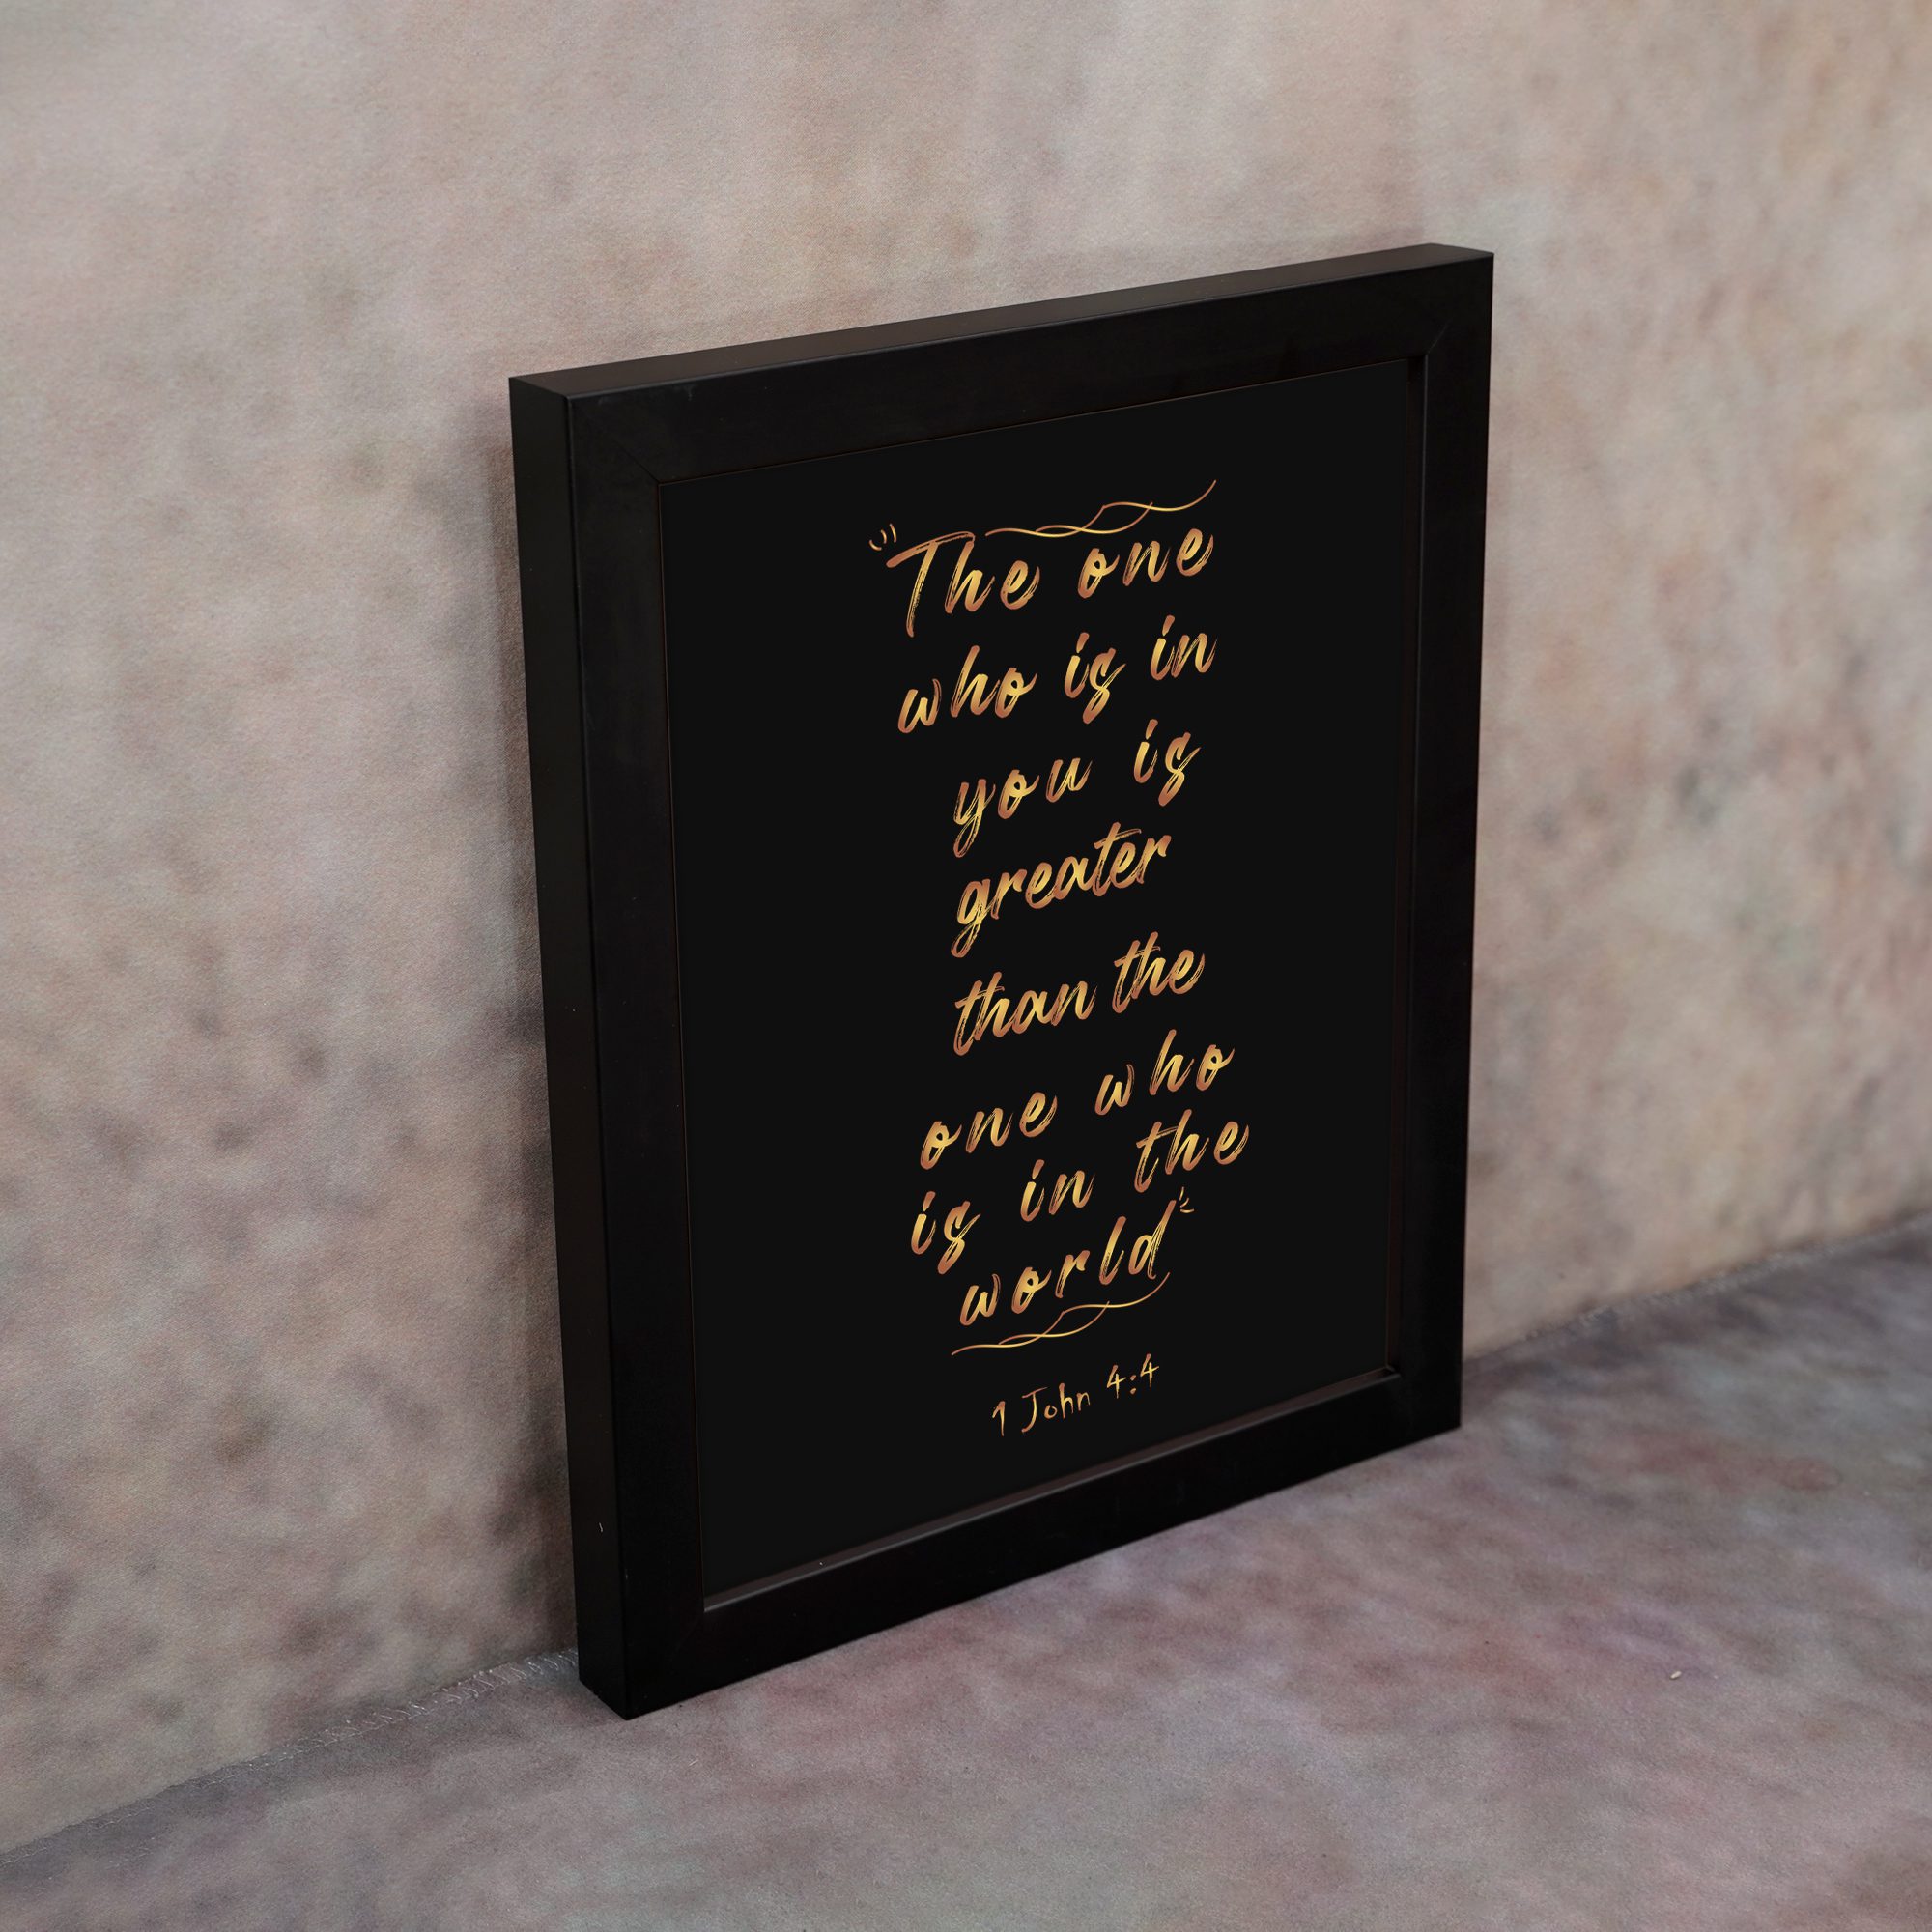 "The one
who is in
you is
greater
than the
one who
is in the
world"
1 John 4:4